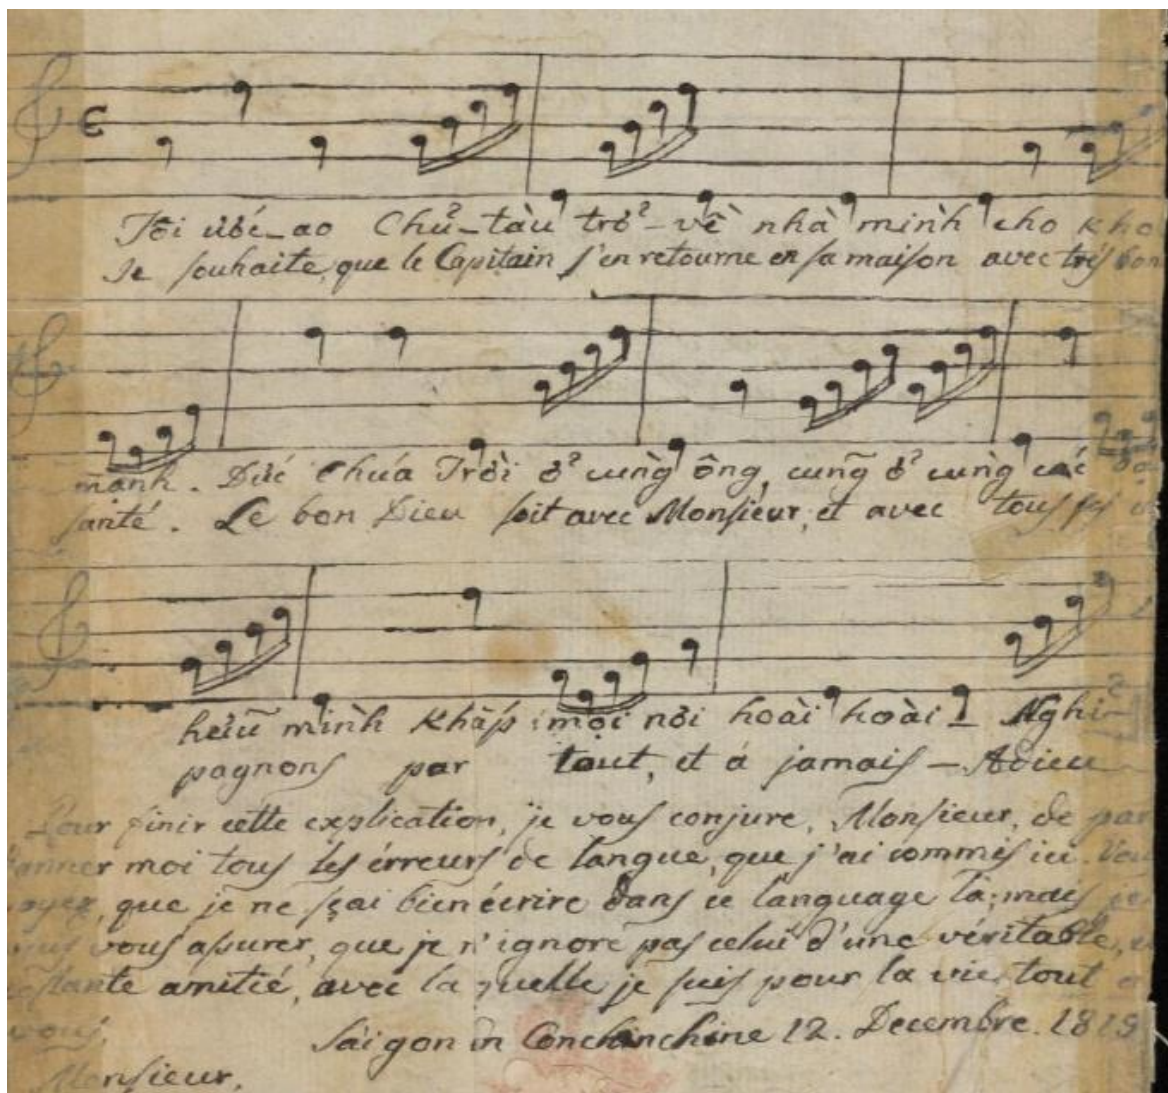 Tôi ước_ao Chủ_tàu trở_về nhà mình cho kho
Je souhaite, que le Capitain s'en retourne en sa maison avec trés bon
mành. Đức Chúa Trời ở cùng ông, cũng ở cùng các
santé. Le bon Dieu soit avec Monsieur, et avec tous ses
hữu mình khắp mọi nơi hoài hoài _ Nghi_
pagnons par tout, et á jamais _ Adieu
Pour finir cette explication, je vous conjure, Monsieur, de par
moi tous les érreurs de langue, que j'ai commis ici.
que je ne sçai bien écrire dans ce language là; mais je
vous assurer, que je n'ignore pas celui d'une véritable,
amitié, avec la quelle je suis pour la vie tout
vous.
Sàigon in Conchinchine 12. Decembre. 1819
Monsieur,